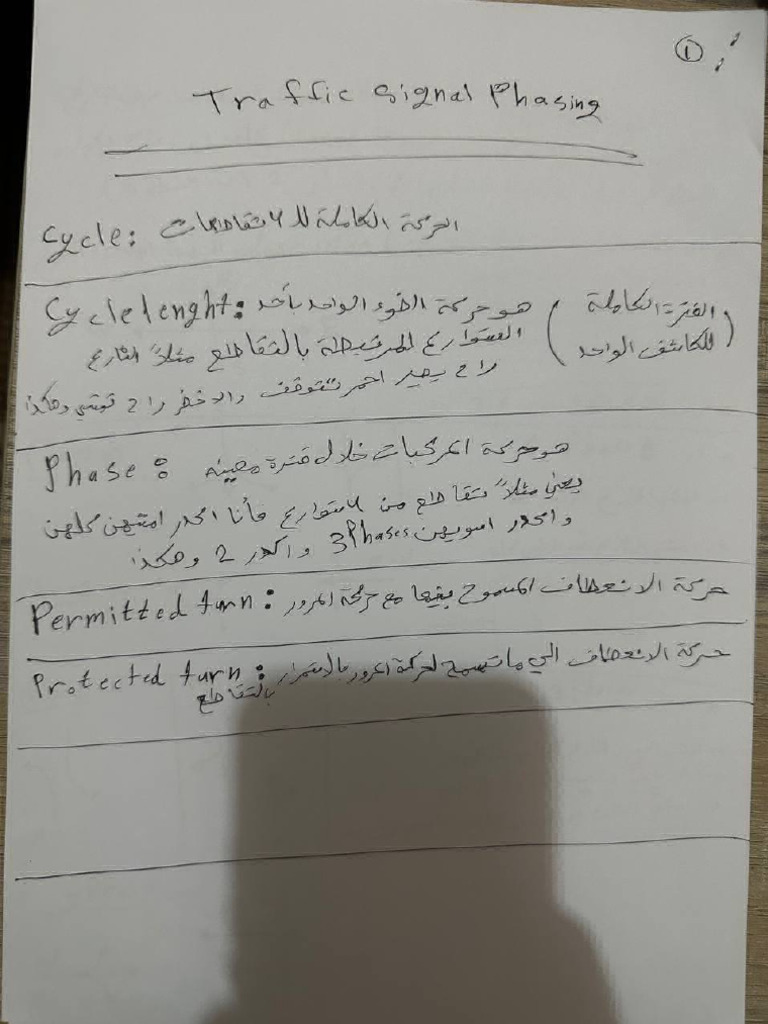 ①
Traffic Signal Phasing
Cycle: الحركة الكاملة للاتقاطعات
Cycle lenght: هو حركة الضوء الواحد بأحد (الفترة الكاملة
الشوارع المرتبطة بالتقاطع مثلاً الشارع للكاشف الواحد)
راح يصير احمر تتوقف والاخضر راح تمشي وهكذا
Phase: هو حركة المركبات خلال فترة معينه
يعني مثلاً تقاطع من 4 شوارع فأنا اكدر امشيهن كلهن
و اكدر اسويهن 3Phases و اكدر 2 وهكذا
Permitted turn: حركة الانعطاف المسموح بيها مع حركة المرور
Protected turn: حركة الانعطاف الي ما تسمح لحركة المرور بالاستمرار
بالتقاطع